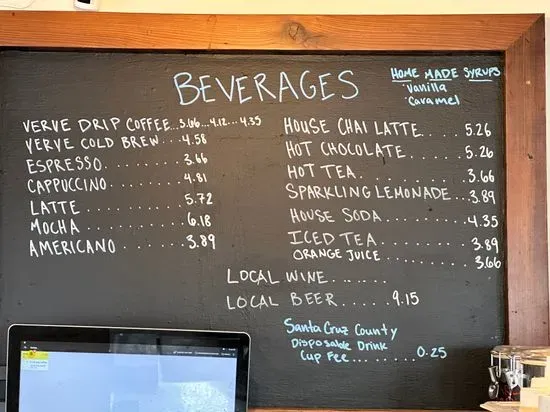 BEVERAGES
HOME MADE SYRUPS
·Vanilla
·Caramel
VERVE DRIP COFFEE...3.66...4.12...4.35
VERVE COLD BREW...4.58
ESPRESSO........3.66
CAPPUCCINO........4.81
LATTE..........5.72
MOCHA..........6.18
AMERICANO.......3.89
HOUSE CHAI LATTE.....5.26
HOT CHOCOLATE......5.26
HOT TEA..........3.66
SPARKLING LEMONADE...3.89
HOUSE SODA........4.35
ICED TEA.........3.89
ORANGE JUICE.........3.66
LOCAL WINE.......
LOCAL BEER.....9.15
Santa Cruz County
Disposable Drink
Cup Fee........0.25